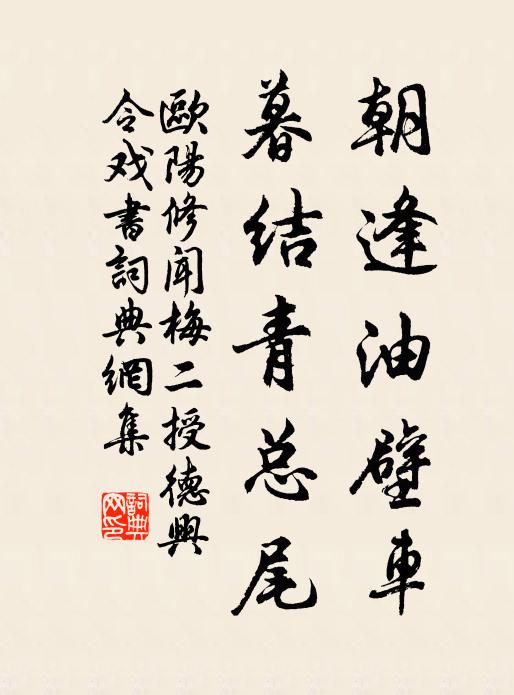 朝逢油壁車
暮结青总尾
歐陽修闻梅二授德興
令戏書詞典網集
詞典网印